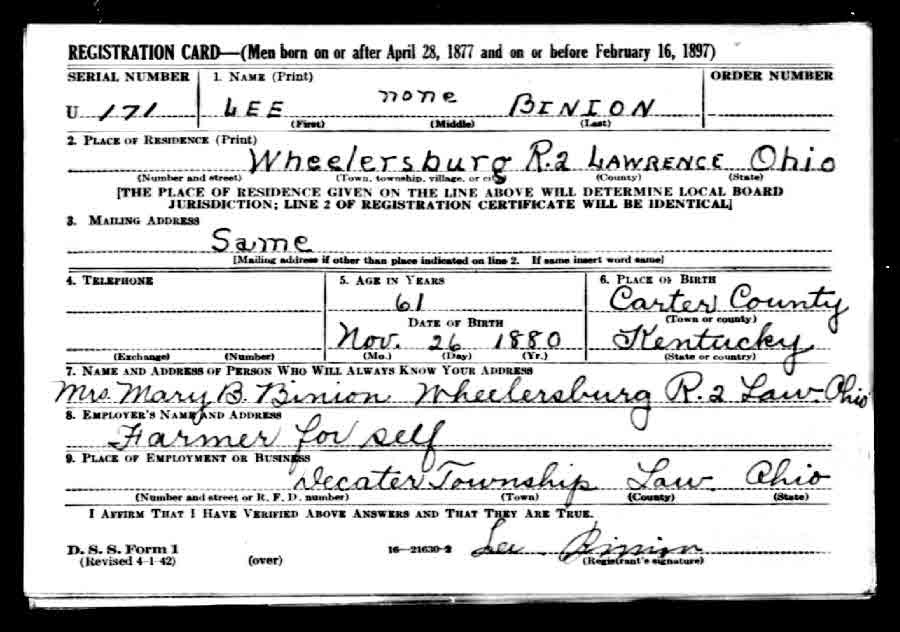 REGISTRATION CARD—(Men born on or after April 28, 1877 and on or before February 16, 1897)
SERIAL NUMBER 1. NAME (Print) ORDER NUMBER
U 171 LEE none BINION
(First) (Middle) (Last)
2. PLACE OF RESIDENCE (Print)
Wheelersburg R.2 LAWRENCE Ohio
(Number and street) (Town, township, village, or city) (County) (State)
[THE PLACE OF RESIDENCE GIVEN ON THE LINE ABOVE WILL DETERMINE LOCAL BOARD
JURISDICTION; LINE 2 OF REGISTRATION CERTIFICATE WILL BE IDENTICAL]
3. MAILING ADDRESS
Same
[Mailing address if other than place indicated on line 2. If same insert word same]
4. TELEPHONE 5. AGE IN YEARS 6. PLACE OF BIRTH
61 Carter County
DATE OF BIRTH (Town or county)
Nov. 26 1880 Kentucky
(Exchange) (Number) (Mo.) (Day) (Yr.) (State or country)
7. NAME AND ADDRESS OF PERSON WHO WILL ALWAYS KNOW YOUR ADDRESS
Mrs. Mary B. Binion Wheelersburg R.2 Law Ohio
8. EMPLOYER'S NAME AND ADDRESS
Farmer for self
9. PLACE OF EMPLOYMENT OR BUSINESS
Decater Township Law. Ohio
(Number and street or R. F. D. number) (Town) (County) (State)
I AFFIRM THAT I HAVE VERIFIED ABOVE ANSWERS AND THAT THEY ARE TRUE.
D. S. S. Form 1 16—21630-2 Lee Binion
(Revised 4-1-42) (over) (Registrant's signature)